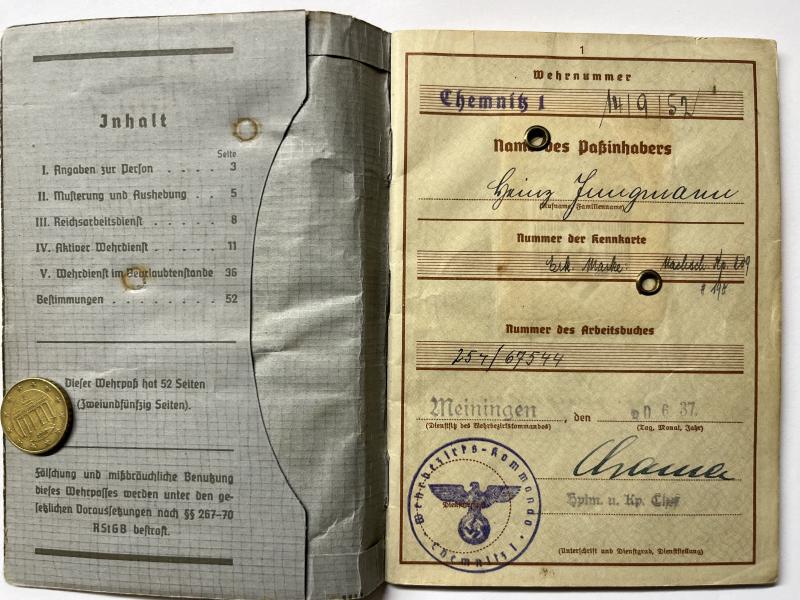 Inhalt
Seite
I. Angaben zur Person . . . . . 3
II. Musterung und Aushebung . . 5
III. Reichsarbeitsdienst . . . . . . 8
IV. Aktiver Wehrdienst . . . . . . 11
V. Wehrdienst im Beurlaubtenstande 36
Bestimmungen . . . . . . . . . 52
Dieser Wehrpaß hat 52 Seiten
(Zweiundfünfzig Seiten).
Fälschung und mißbräuchliche Benutzung
dieses Wehrpasses werden unter den ge-
setzlichen Voraussetzungen nach §§ 267-70
RStGB bestraft.
1
Wehrnummer
Chemnitz 1 14/9/52/
Name des Paßinhabers
Heinz Jungmann
(Rufname) (Familienname)
Nummer der Kennkarte
Erk. Marke
Nummer des Arbeitsbuches
257/67544
Meiningen, den 20. 6. 37.
(Dienstsitz des Wehrbezirkskommandos) (Tag, Monat, Jahr)
Wehrbezirks-Kommando
Chemnitz 1
Hptm. u. Kp. Chef
(Unterschrift und Dienstgrad, Dienststellung)